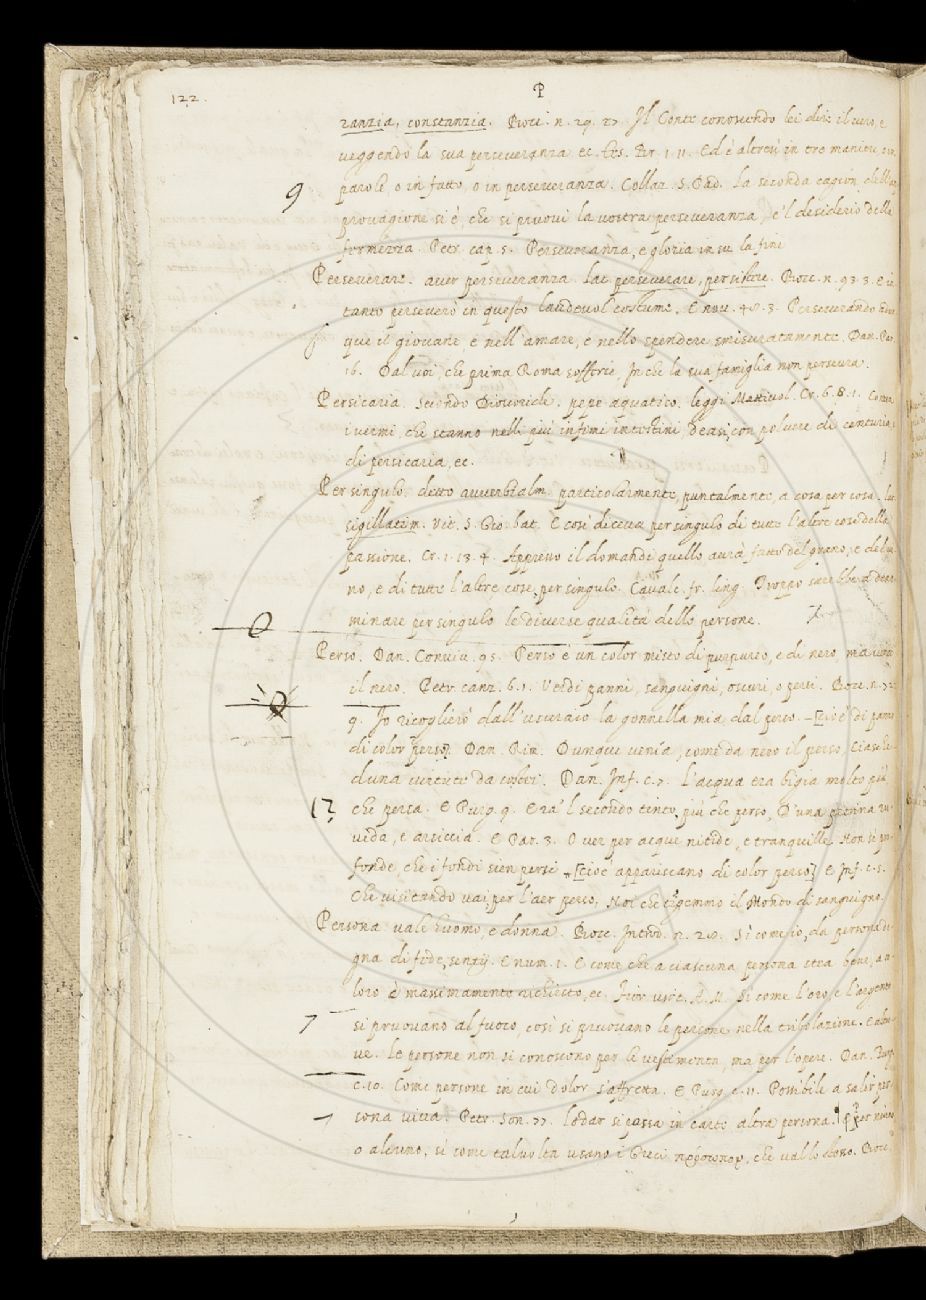 122.
P
ranzia, constanzia. Bocc. n. 29. 27. Il Conte conoscendo lei dire il vero, e
veggendo la sua perseveranza ec. Ed è altresì in tre maniere,
parole, o in fatto, o in perseveranza. Collaz. S. Pad. La seconda cagion della
9
provagione si è, che si pruovi la vostra perseveranza, e 'l desiderio della
fermezza. Petr. cap. 5. Perseveranza, e gloria in su la fine
Perseverare. aver perseveranza. Lat. perseverare, persistere. Bocc. n. 93. 3. E in
tanto perseverò in questo laudevol costume. E nov. 48. 3. Perseverando
que il giovane, e nell'amare, e nello spendere smisuratamente. Dan. Par.
16. Dal voi, che prima Roma sofferie, In che la sua famiglia men persevra.
Persicaria. Secondo Dioscoride. pepe aquatico. leggi Mattivol. Cr. 6. 8. 1. Contra
i vermi, che stanno nelli più infimi intestini deasi, con polvere di centuria,
di persicaria, ec.
Per singulo. detto avverbialm. particolarmente, puntalmente, a cosa per cosa. Lat.
sigillatim. Vit. S. Gio. bat. E così diceva per singulo di tutte l'altre cose della
passione. Cr. 1. 13. 4. Appresso il domandi quello avrà fatto del grano, e del vi-
no, e di tutte l'altre cose, per singulo. Cavalc. fr. ling. Troppo sarebbe a deter-
minare per singulo le diverse qualità delle persone.
Perso. Dan. Conviv. 95. Perso è un color misto di purpureo, e di nero
il nero. Petr. canz. 6. 1. Verdi panni, sanguigni, oscuri, o persi. Bocc. n. 72.
9. Io ricogliero dall'usuraio la gonnella mia dal perso. [cioè di panno
di color perso]. Dan. Rim. Dunque venia, come da nero il perso, Ciasche-
duna virtute da costei. Dan. Inf. c. 7. L'acqua era bigia molto più,
12
che persa. E Purg. 9. Era 'l secondo tinto, più che perso, D'una petrina ru-
vida, e arsiccia. E Par. 3. O ver per acque nitide, e tranquille, Non sì pro-
fonde, che i fondi sien persi [cioè appariscano di color perso] E Inf. c. 5.
Che visitando vai, per l'aer perso, Noi che tignemmo il Mondo di sanguigno.
Persona. vale huomo, e donna. Bocc. Introd. n. 28. Sì come io, da persona de-
gna di fede, sentij. E num. 1. E come che a ciascuna persona stea bene, a co-
loro è massimamente richiesto, ec. Fior. virt. A. M. Si come l'oro, e l'argento
7
si pruovano al fuoco, così si pruovano le persone nella tribolazione. E altro-
ve. Le persone non si conoscono per le vestimenta, ma per l'opere. Dan. Purg.
c. 10. Come persone in cui dolor s'affretta. E Purg. c. 11. Possibile a salir per-
sona viva. Petr. Son. 77. Lodar si possa in carte altra persona.
o alcuno, si come talvolta usano i Greci πρόσωπον, che val lo stesso. Bocc.